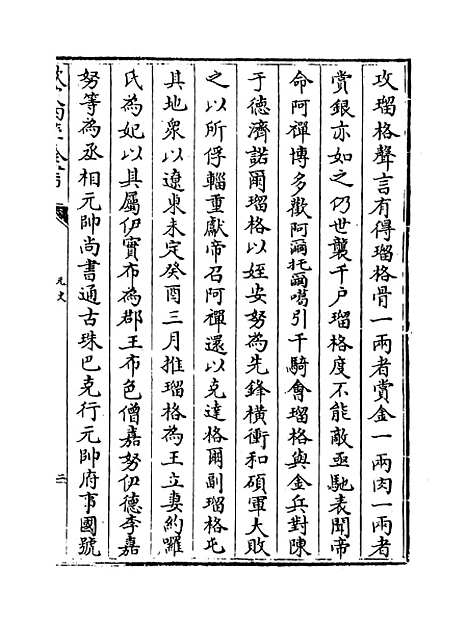 攻瑠格聲言有得瑠格骨一兩者賞金一兩肉一兩者
賞銀亦如之仍世襲千戶瑠格度不能敵亟馳表聞帝
命阿禪博多歡阿爾托爾噶引千騎會瑠格與金兵對陳
于德濟諾爾瑠格以姪安努為先鋒橫衝和碩軍大敗
之以所俘輜重獻帝召阿禪還以克達格爾副瑠格屯
其地衆以遼東未定癸酉三月推瑠格為王立妻約囉
氏為妃以其屬伊實布為郡王布色僧嘉努伊德李嘉
努等為丞相元帥尚書通古珠巴克行元帥府事國號
元史
二